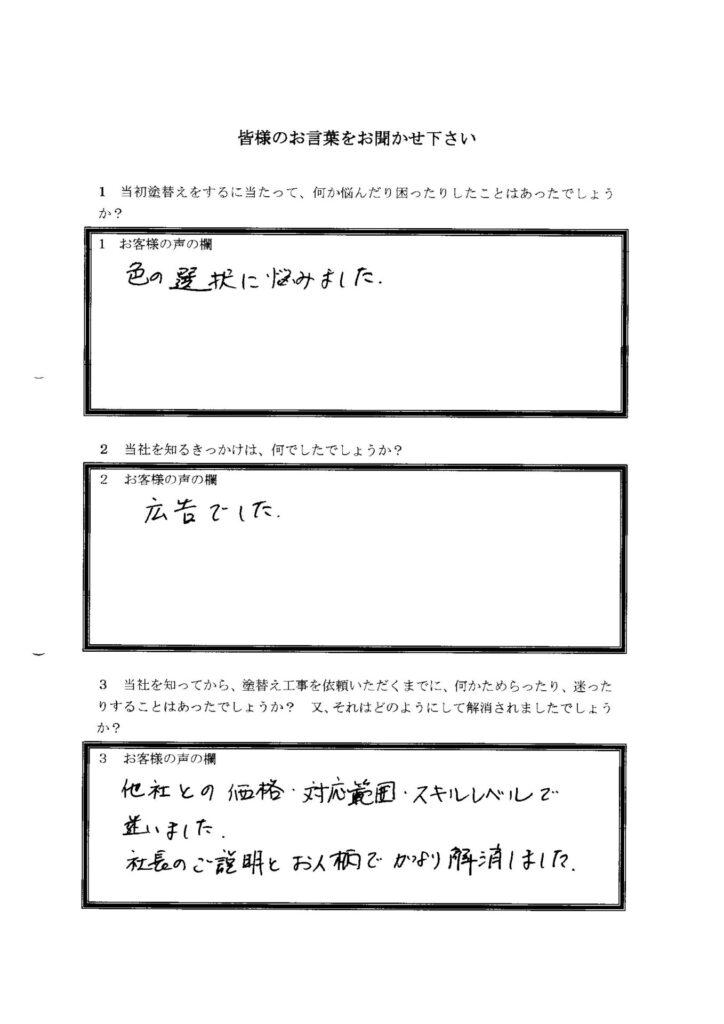 皆様のお言葉をお聞かせ下さい
1 当初塗替えをするに当たって、何か悩んだり困ったりしたことはあったでしょう
か？
1 お客様の声の欄
色の選択に悩みました.
2 当社を知るきっかけは、何でしたでしょうか？
2 お客様の声の欄
広告でした.
3 当社を知ってから、塗替え工事を依頼いただくまでに、何かためらったり、迷った
りすることはあったでしょうか？ 又、それはどのようにして解消されましたでしょう
か？
3 お客様の声の欄
他社との価格・対応範囲・スキルレベルで
迷いました.
社長のご説明とお人柄でかなり解消しました.